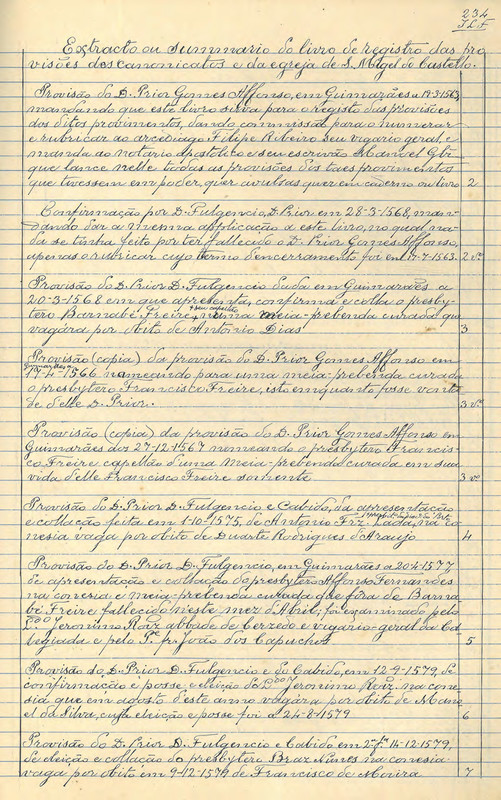 234
Extracto ou summario do livro de registro das pro
visões dos canonicatos e da egreja de S. Migel do Castello.
Provisão do D. Prior Gomes Affonso, em Guimarães a 19-3-1563,
mandando que este livro sirva para o registo das provisões
dos ditos provimentos, dando commissão para o numerar
e rubricar ao arcediago Filipe Ribeiro seu vigario geral, e
manda ao notario apostolico e seu escrivão Manoel Glz
que lance nelle todas as provisões dos taes provimentos
que tivessem em poder, quer avulsas quer em caderno ou livro 2
Confirmação por D. Fulgencio, D. Prior em 28-3-1568, man-
dando dar a mesma applicação a este livro, no qual na-
da se tinha feito por ter fallecido o D. Prior Gomes Affonso,
apenas o rubricar cujo termo d'encerramento foi em 17-7-1563. 2 vº
Provisão do D. Prior D. Fulgencio dada em Guimarães a
20-3-1568 em que apresenta, confirma e colla o presby-
tero Barnabé Freire, seu capellão numa meia-prebenda curada que
vagára por obito de Antonio Dias 3
Provisão (copia) da provisão do D. Prior Gomes Affonso em
Guimarães a 19-4-1566 nomeando para uma meia-prebenda curada
o presbytero Francisco Freire, isto emquanto fosse vonta
de d'elle D. Prior. 3 vº
Provisão (copia) da provisão do D. Prior Gomes Affonso em
Guimarães aos 27-12-1567 nomeando o presbytero Francis-
co Freire capellão d'uma meia-prebenda curada em sua
vida d'elle Francisco Freire somente 3 vº
Provisão do D. Prior D. Fulgencio e Cabido, da apresentação
e collação feita em 1-10-1575, de Antonio Frz. Lada, na co
nesia vaga por obito de Duarte Rodrigues d'Araujo 4
Provisão do D. Prior D. Fulgencio, em Guimarães a 20-4-1577
de apresentação e collação do presbytero Affonso Fernandes
na conesia e meia-prebenda curada que fôra do Barna
bé Freire fallecido neste mez d'Abril; foi examinado pelo
Lᵈᵒ Jeronimo Roiz abbade de Cerzedo e vigario-geral da Col
legiada e pelo Pᵉ. fr. João dos Capuchos 5
Provisão do D. Prior D. Fulgencio e do Cabido, em 12-4-1579, de
confirmação e posse e eleição de Lᵈᵒ Jeronimo Roiz. na cone
sia que em agosto d'este anno vagára por obito de Mano
el da Silva, cuja eleição e posse foi a 24-8-1579 6
Provisão do D. Prior D. Fulgencio e Cabido em 2ᵃ fʳᵃ 14-12-1579,
de eleição e collação do presbytero Braz Nunes na conesia
vaga por obito em 9-12-1579 de Francisco de Moura 7